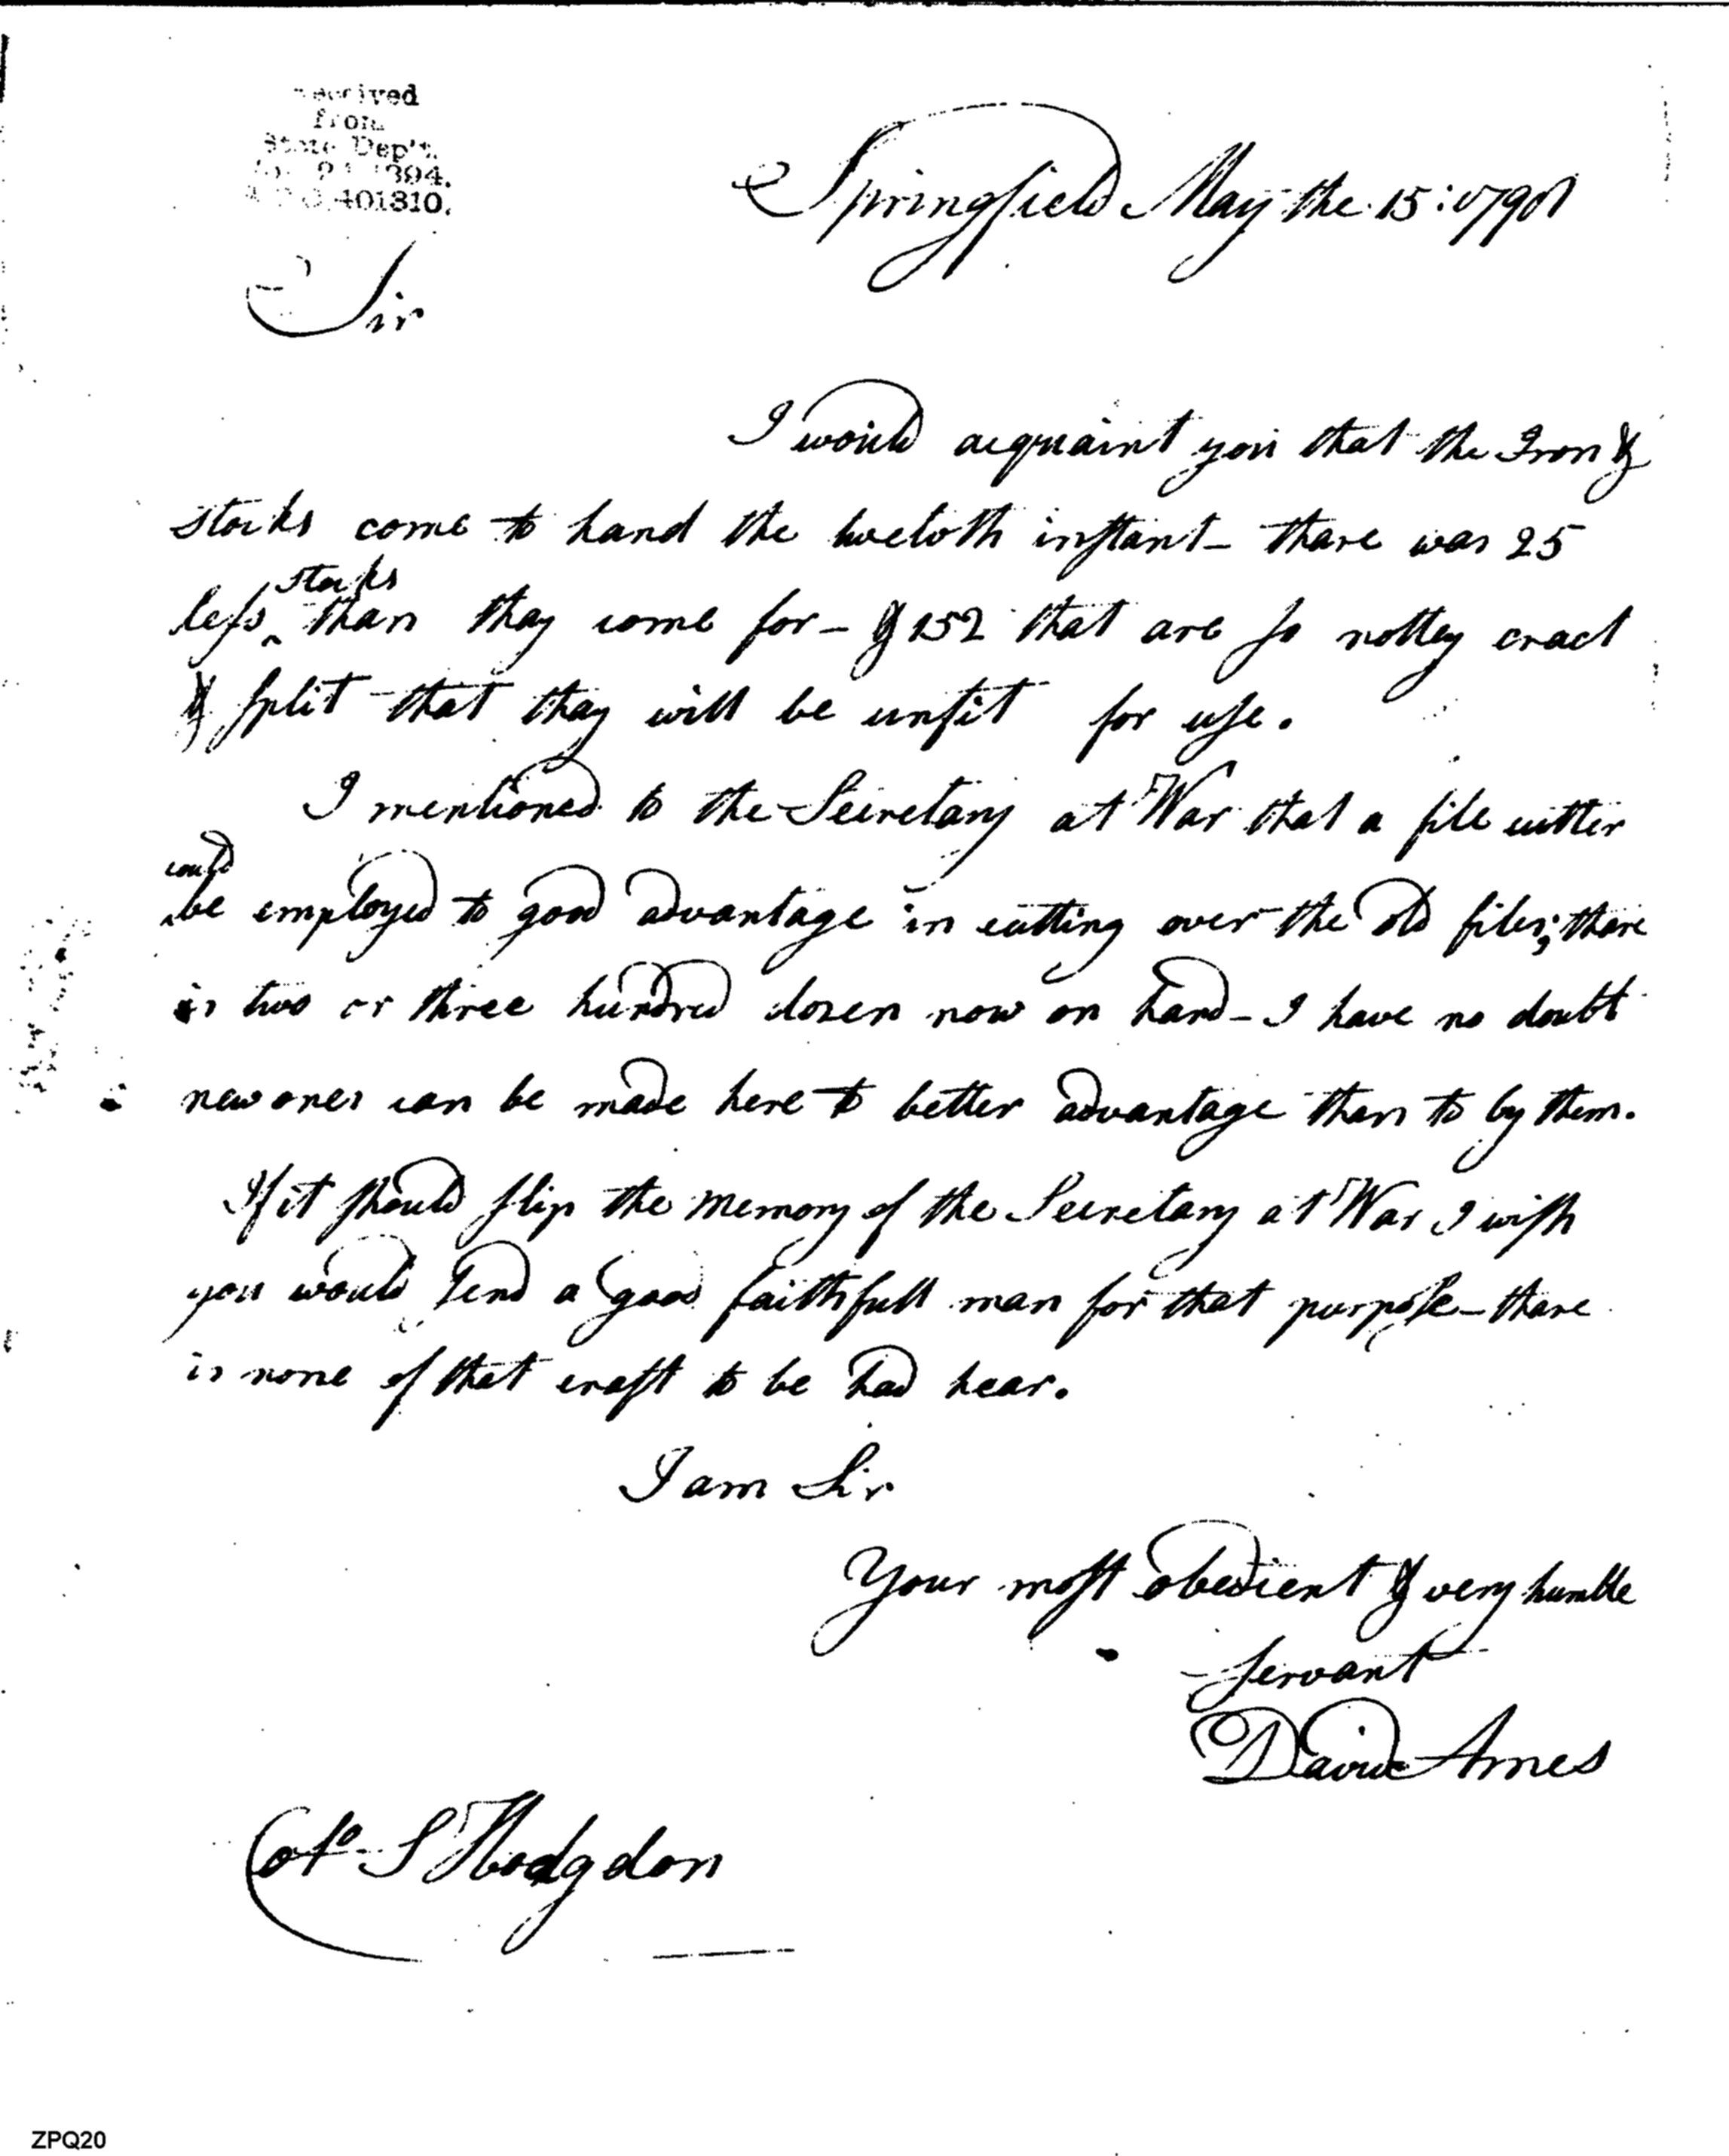 received
from
State Dep't.
1894.
401310.
Springfield May the 15: 1798
Sir
I would acquaint you that the Iron &
stocks come to hand the twelvth instant - thare was 25
less stocks than thay come for - & 152 that are so nottey cract
& split that thay will be unfit for use.
I mentioned to the Secretary at War that a file cutter
could be employed to good advantage in cutting over the old files; thare
is two or three hundred dozen now on hand - I have no doubt
new ones can be made here to better advantage than to by them.
If it should slip the memory of the Secretary at War I wish
you would send a good faithfull man for that purpose - thare
is none of that craft to be had hear.
I am Sir
Your most obedient & very humble
servant
David Ames
Colo. S Hodgdon
ZPQ20